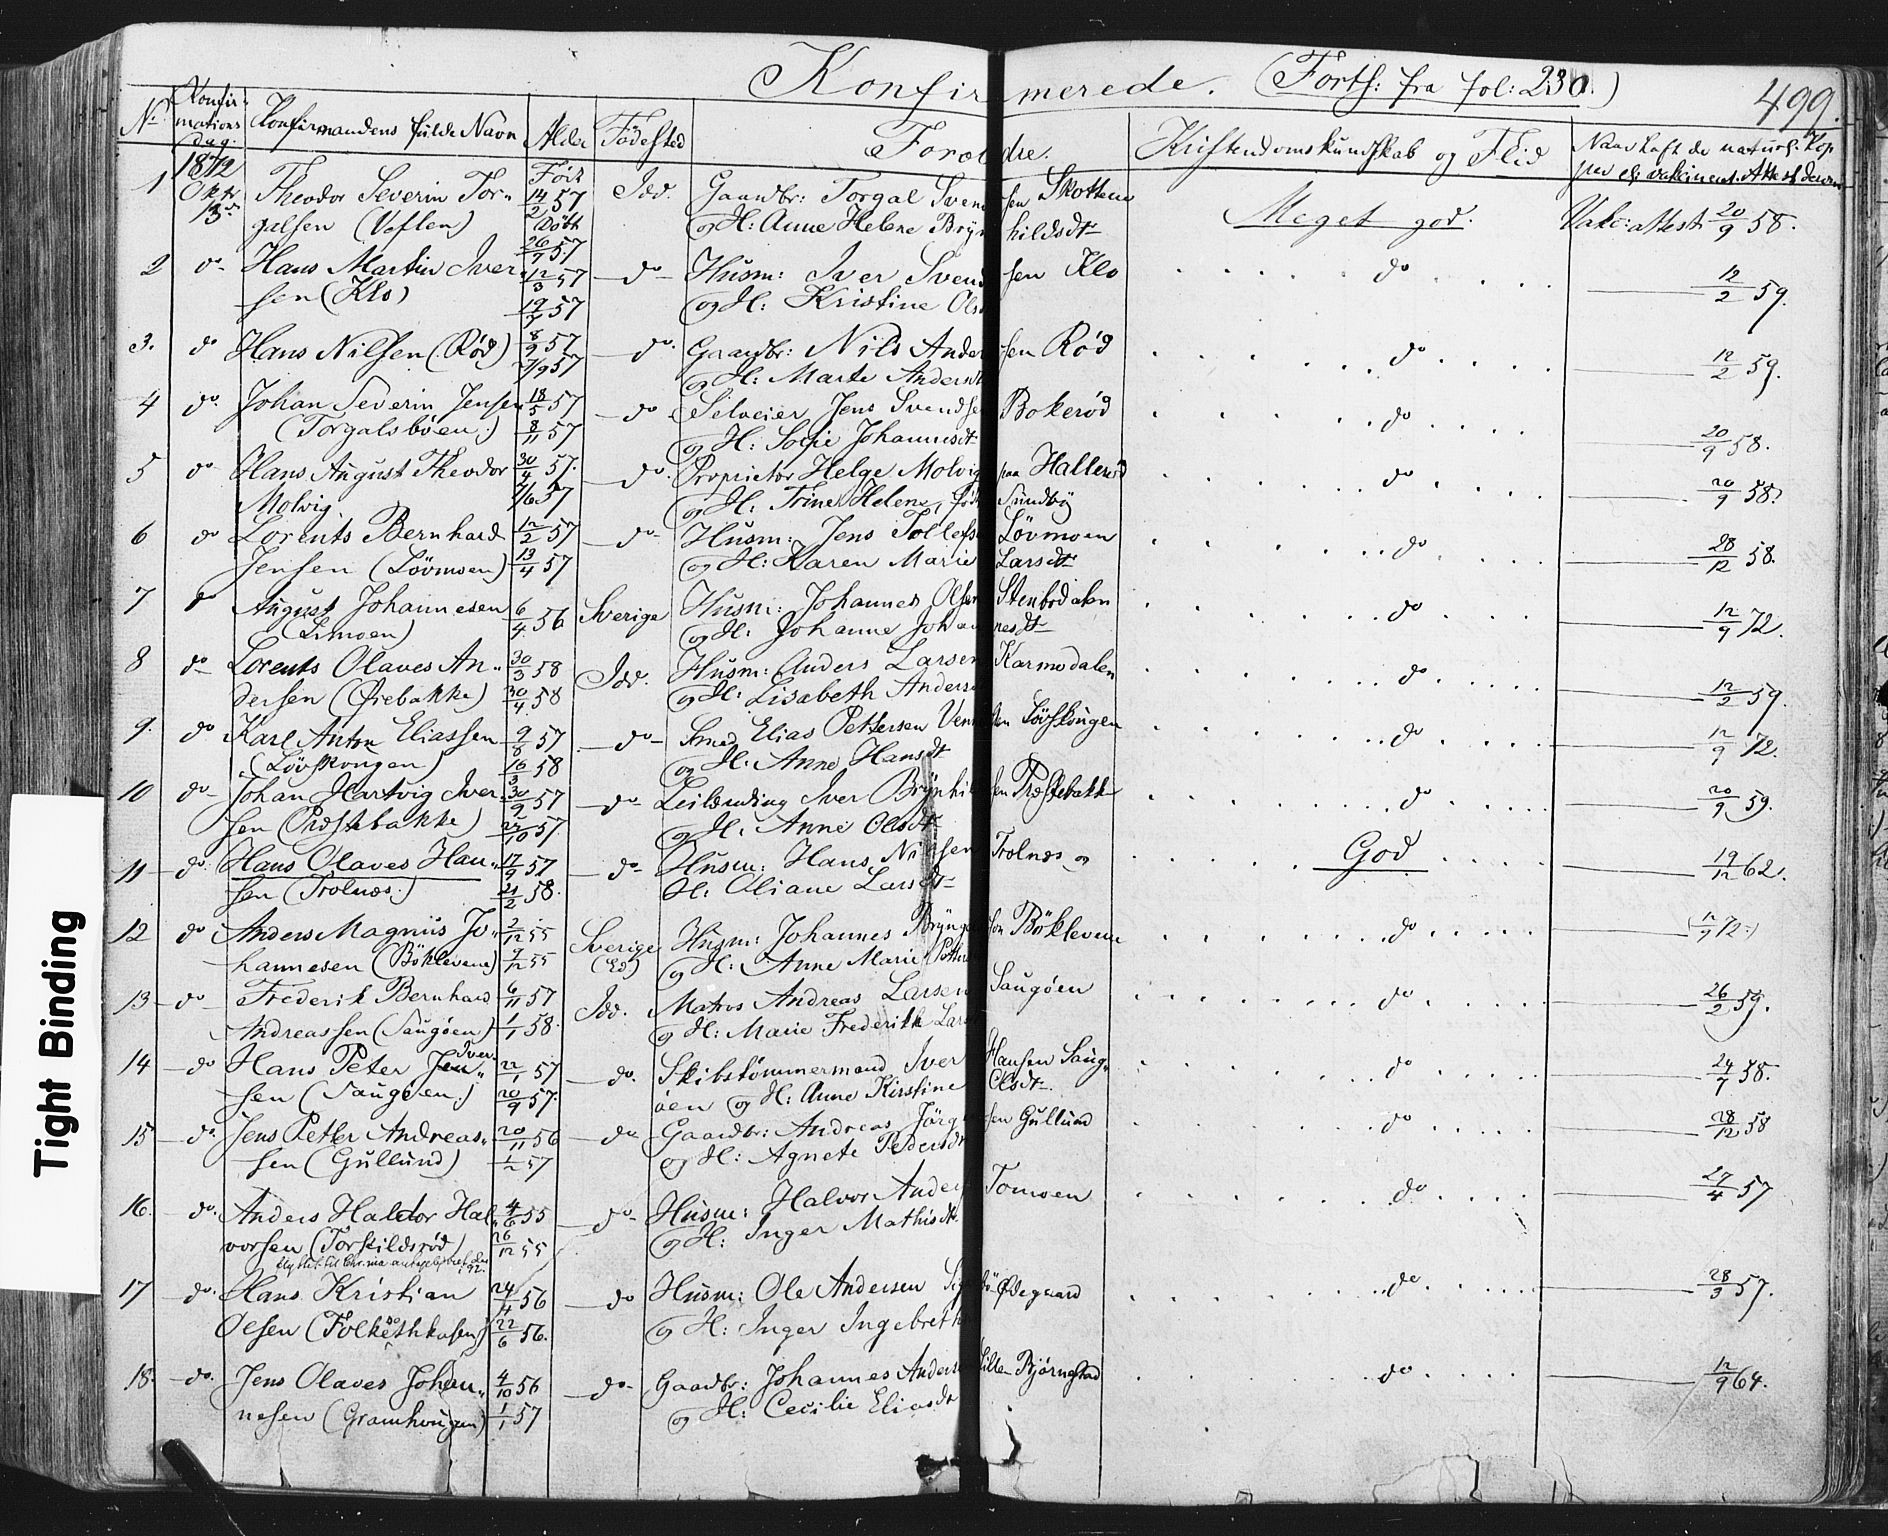 Konfirmerede. (Forts: fra fol: 230.)
499.
No Konfirmations dag. Konfirmandens fulde Navn Alder Fødested Forældre. Kristendomskundskab og Flid Naar haft de naturl: Kopper el: vakcineret. Attest derom
1872 Født
1 Oktr 13de Theodor Severin Tor- 14/2 57 Idd. Gaardbr: Torgal Svendsen Skottene Meget god. Vakc: attest 20/9 58.
galsen (Veflen) Døbt 26/7 57 og H: Anne Helene Brynhildsdt
2 do Hans Martin Iver- 12/3 57 do Husm: Iver Svendsen Klo do 12/2 59.
sen (Klo) 19/7 57 og H: Kristine Ols
3. do Hans Nilsen (Rød) 8/9 57 do Gaardbr: Nils Andersen Rød do 12/2 59.
57 og H: Marte Anders
4 do. Johan Severin Jensen 18/5 57 do Selveier Jens Svendsen Bokerød do 20/9 58.
(Torgalsbøen.) 8/11 57 og H: Sofie Johannesdt
5 do Hans August Theodor 30/4 57. do. Proprietær Helge Molvig paa Hallerød do 20/9 58.
Molvig. 7/6 57 og H: Trine Helene, født Sundby
6 do Lorents Bernhard 12/2 57 do Husm: Jens Tollefs Løvmoen do 28/12 58.
Jensen (Løvmoen) 13/4 57 og H: Karen Marie Larsdt
7 do August Johannesen 6/4 56 Sverige Husm: Johannes Olsen Stenbrodalen do 12/9 72.
(Limoen) og H: Johanne Johannesdt
8 do Lorents Olaves An- 30/3 58 Idd. Husm: Anders Larsen Karmodalen do 12/2 59.
dersen (Ørebakke) 30/4 58 og H: Lisabeth Anders
9. do Karl Anton Eliassen 9/8 57 do Smed Elias Pettersen Løvskougen do 12/9 72.
(Løvskougen) 16/3 58 og H: Anne Hansdt
10 do Johan Hartvig Iver- 30/9 57 do Leilænding Iver Brynhildsen Præstebakke do 20/9 59.
sen (Præstebakke) 22/10 57 og H: Anne Olsdt
11 do Hans Olaves Han- 17/9 57 do Husm: Hans Nilsen Trolnæs og God 19/12 62.
sen (Trolnæs.) 21/2 58. H: Oliane Larsdt
12 do Anders Magnus Jo- 2/12 55 Sverige Husm: Johannes Bryngelson Böklevene do 12/9 72.
hannesen (Böklevene) 9/12 55 (Ed) og H: Anne Marie Petters
13 do Frederik Bernhard 6/11 57 Idd. Matros Andreas Larsen Saugøen do 26/2 59.
Andreassen (Saugøen) 1/1 58. og H: Marie Frederikke Lars
14 do Hans Peter Iver- 22/1 57 do. Skibstømmermand Iver Hansen Saug- do 24/7 58.
sen (Saugøen.) 20/9 57. øen og H: Anne Kirstine Olsdt.
15 do Jens Petter Andreas- 20/11 56 do Gaardbr: Andreas Jørgensen Gullund do 28/12 58
sen (Gullund) 1/2 57 og H: Agnete Pedersdt
16. do. Anders Haldor Hal- 4/6 55 do Husm: Halvor Anders Tomoen do 27/4 57
vorsen (Torskildsrød) 26/12 55 og H: Inger Mathisdt.
17 do. Hans Kristian 24/4 56 do Husm: Ole Andersen Ødegaard do 28/3 57.
Olsen (Folkesthkasen) 22/6 56. og H: Inger Ingebreths
18. do. Jens Olaves Johan- 4/10 56 do Gaardbr: Johannes Anders Lille Bjørnstad do 12/9 64.
nesen (Gramhougen) 1/1 57 og H: Cecilie Eliasdt
Tight Binding